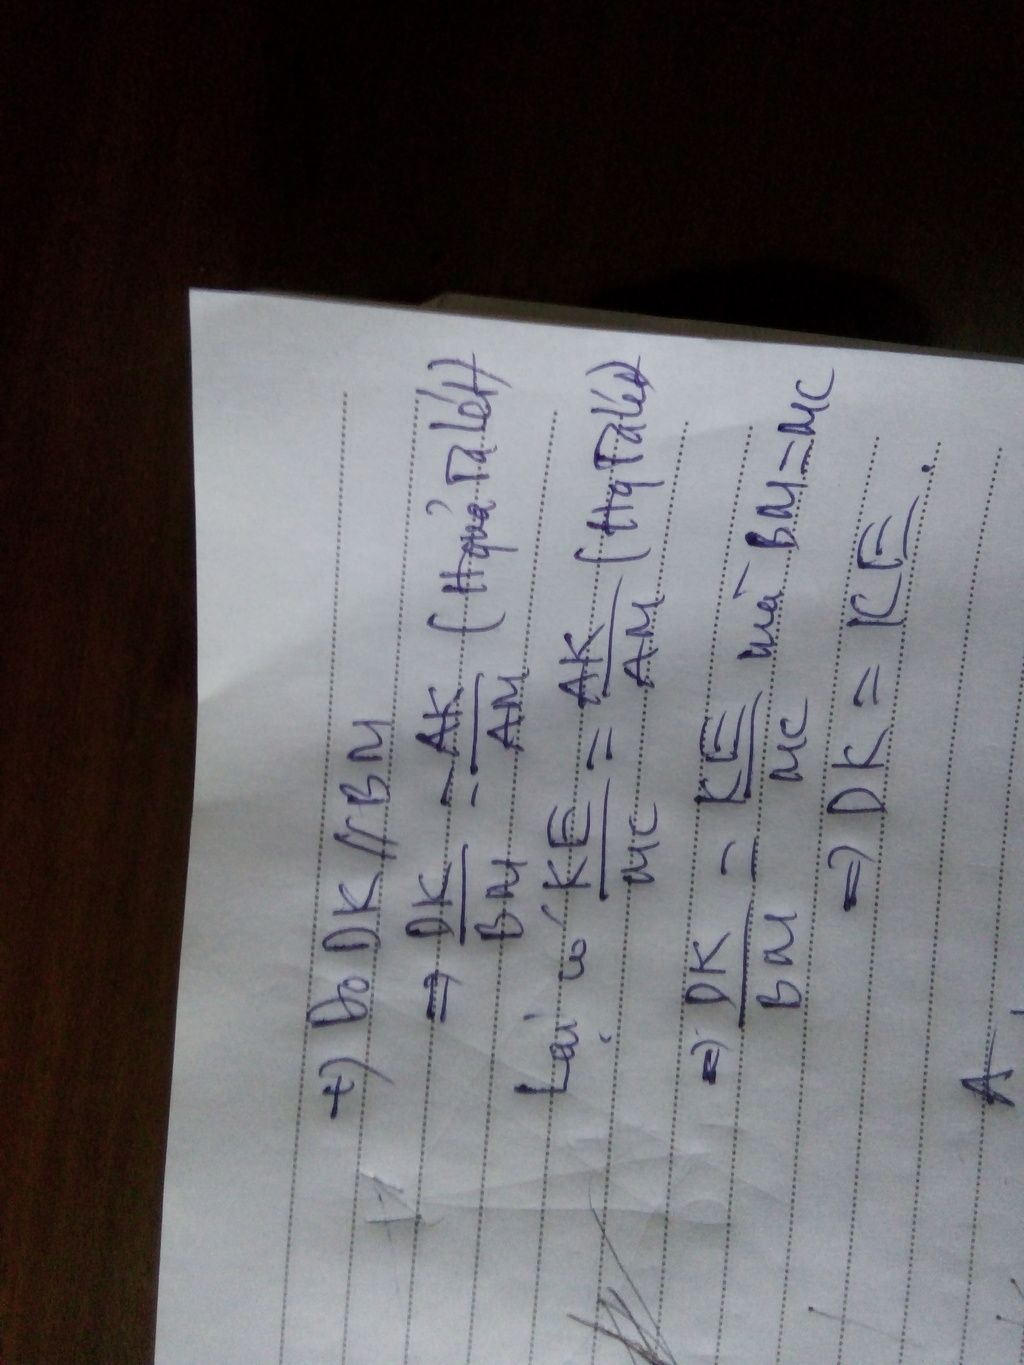 +) Do DK // BM
=> DK/BM = AK/AM (Hquả Talét)
Lại có KE/MC = AK/AM (Hq Talét)
=> DK/BM = KE/MC mà BM = MC
=> DK = KE.
A